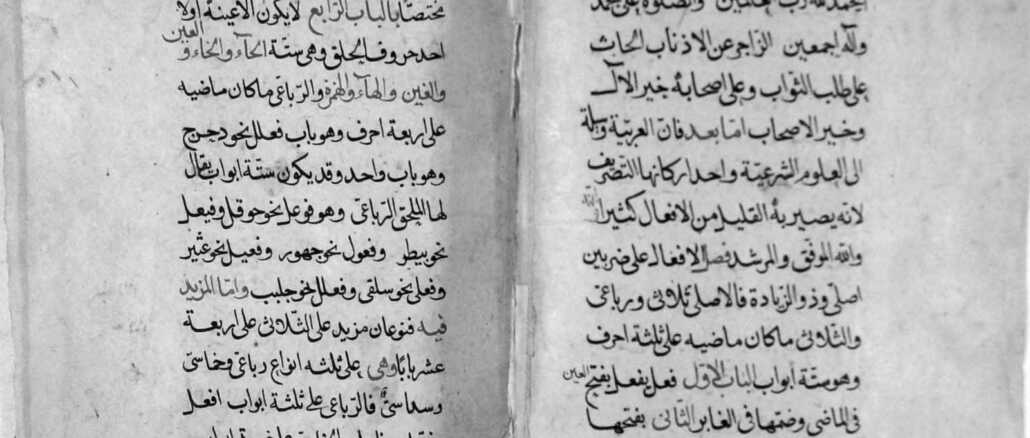 الحمد لله رب العالمين والصلوة على محمد
وآله اجمعين الزاجر عن الاذناب الحاث
على طلب الثواب وعلى اصحابه خير الال
وخير الاصحاب اما بعد فان العربية وسيلة
الى العلوم الشرعية واحد اركانها التصريف
لانه يصير به القليل من الافعال كثيرا
والله الموفق والمرشد فصل الافعال على ضربين
اصلى وذو الزيادة فالاصلى ثلاثى ورباعى
والثلاثى ماكان ماضيه على ثلثة احرف
وهو ستة ابواب الباب الاول فعل يفعل بفتح العين
فى الماضى وضمها فى الغابر الثانى بفتحها
يختص بالباب الرابع لا يكون الا عينه اولا
احد حروف الحلق وهى ستة الحآء والخاء و العين
والغين والهآء والهمزة والرباعى ماكان ماضيه
على اربعة احرف وهو باب فعلل نحو دحرج
وهو باب واحد وقد يكون ستة ابواب يقال
لها الملحق الرباعى وهو فوعل نحو حوقل وفيعل
نحو بيطر وفعول نحو جهور وفعيل نحو عثير
وفعلى نحو سلقى وفعلل نحو جلبب واما المزيد
فيه فنوعان مزيد على الثلاثى على اربعة
عشر بابا وهى على ثلثه انواع رباعى وخماسى
وسداسى فالرباعى على ثلثة ابواب افعل